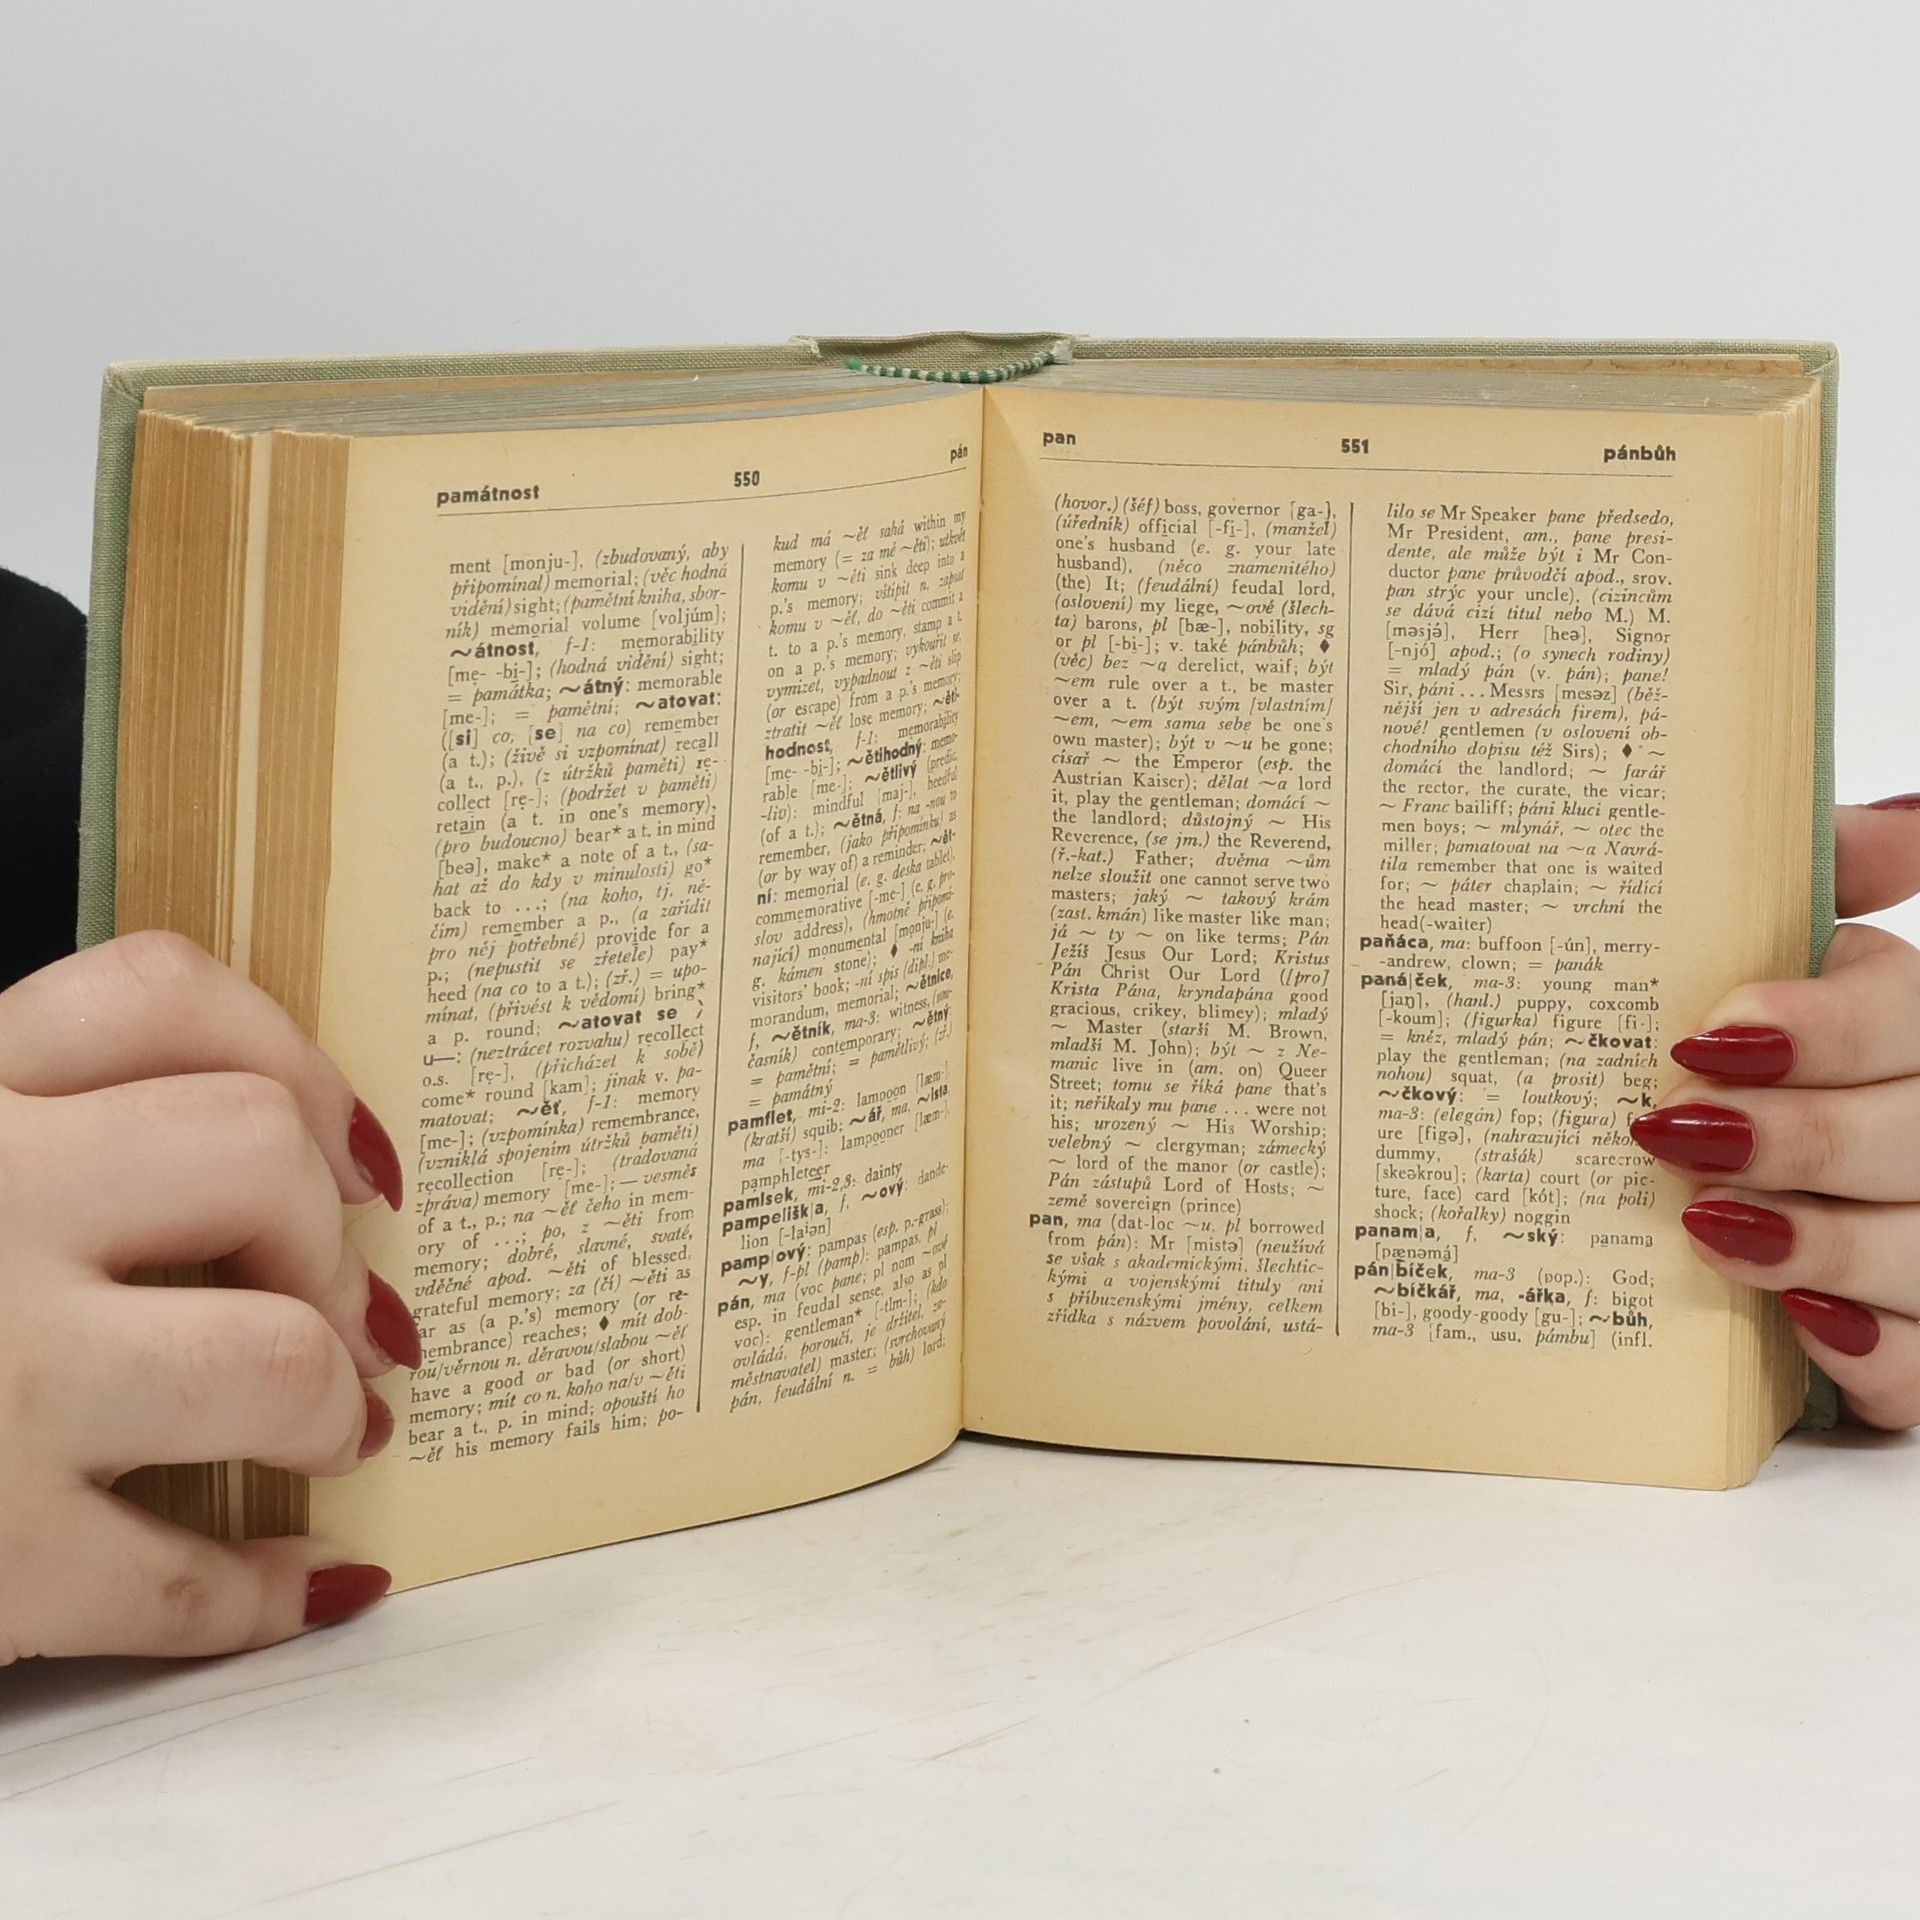 památnost 550 pán
ment [monju-], (zbudovaný, aby
připomínal) memorial; (věc hodná
vidění) sight; (pamětní kniha, sbor-
ník) memorial volume [voljúm];
~átnost, f-1: memorability
[me- -bi-]; (hodná vidění) sight;
= památka; ~átný: memorable
[me-]; = pamětní; ~atovat:
([si] co, [se] na co) remember
(a t.); (živě si vzpomínat) recall
(a t., p.), (z útržků paměti) re-
collect [re-]; (podržet v paměti)
retain (a t. in one's memory),
(pro budoucno) bear* a t. in mind
[beə], make* a note of a t., (sa-
hat až do kdy v minulosti) go*
back to ...; (na koho, tj. ně-
čím) remember a p., (a zařídit
pro něj potřebné) provide for a
p.; (nepustit se zřetele) pay*
heed (na co to a t.); (zř.) = upo-
mínat, (přivést k vědomí) bring*
a p. round; ~atovat se
u—: (neztrácet rozvahu) recollect
o.s. [re-], (přicházet k sobě)
come* round [kam]; jinak v. pa-
matovat; ~ěť, f-1: memory
[me-]; (vzpomínka) remembrance,
(vzniklá spojením útržků paměti)
recollection [re-]; (tradovaná
zpráva) memory [me-]; — vesměs
of a t., p.; na ~ěť čeho in mem-
ory of ...; po, z ~ěti from
memory; dobré, slavné, svaté,
vděčné apod. ~ěti of blessed,
grateful memory; za (čí) ~ěti as
far as (a p.'s) memory (or re-
membrance) reaches; ♦ mít dob-
rou/věrnou n. děravou/slabou ~ěť
have a good or bad (or short)
memory; mít co n. koho na/v ~ěti
bear a t., p. in mind; opouští ho
~ěť his memory fails him; po-
kud má ~ěť sahá within my
memory (= za mé ~ěti); utkvět
komu v ~ěti sink deep into a
p.'s memory; vštípit n. zapsat
komu v ~ěť, do ~ěti commit a
t. to a p.'s memory, stamp a t.
on a p.'s memory; vykouřit se,
vymizet, vypadnout z ~ěti slip
(or escape) from a p.'s memory;
ztratit ~ěť lose memory; ~ěti-
hodnost, f-1: memorability
[me- -bi-]; ~ětihodný: memo-
rable [me-]; ~ětlivý (predic.
-liv): mindful [maj-], heedful
(of a t.); ~ětná, f: na -nou to
remember, (jako připomínku) as
(or by way of) a reminder; ~ět-
ní: memorial (e. g. deska tablet),
commemorative [-me-] (e. g. pro-
slov address), (hmotně připomí-
nající) monumental [monju-] (e.
g. kámen stone); ♦ -ní kniha
visitors' book; -ní spis (dipl.) me-
morandum, memorial; ~ětnice,
f, ~ětník, ma-3: witness, (sou-
časník) contemporary; ~ětný:
= pamětní; = pamětlivý; (zř.)
= památný
pamflet, mi-2: lampoon [læm-],
(kratší) squib; ~ář, ma, ~ista,
ma [-tys-]: lampooner [læm-],
pamphleteer
pamlsek, mi-2,3: dainty
pampelišk|a, f, ~ový: dande-
lion [-laiən]
pamp|ový: pampas (esp. p.-grass);
~y, f-pl (pamp): pampas, pl
pán, ma (voc pane; pl nom ~ové
esp. in feudal sense, also as pl
voc): gentleman* [-tlm-]; (kdo
ovládá, poroučí, je držitel, za-
městnavatel) master; (svrchovaný
pán, feudální n. = bůh) lord;
pan 551 pánbůh
(hovor.) (šéf) boss, governor [ga-],
(úředník) official [-fi-], (manžel)
one's husband (e. g. your late
husband), (něco znamenitého)
(the) It; (feudální) feudal lord,
(oslovení) my liege, ~ové (šlech-
ta) barons, pl [bæ-], nobility, sg
or pl [-bi-]; v. také pánbůh; ♦
(věc) bez ~a derelict, waif; být
~em rule over a t., be master
over a t. (být svým [vlastním]
~em, ~em sama sebe be one's
own master); být v ~u be gone;
císař ~ the Emperor (esp. the
Austrian Kaiser); dělat ~a lord
it, play the gentleman; domácí ~
the landlord; důstojný ~ His
Reverence, (se jm.) the Reverend,
(ř.-kat.) Father; dvěma ~ům
nelze sloužit one cannot serve two
masters; jaký ~ takový krám
(zast. kmán) like master like man;
já ~ ty ~ on like terms; Pán
Ježíš Jesus Our Lord; Kristus
Pán Christ Our Lord ([pro]
Krista Pána, kryndapána good
gracious, crikey, blimey); mladý
~ Master (starší M. Brown,
mladší M. John); být ~ z Ne-
manic live in (am. on) Queer
Street; tomu se říká pane that's
it; neříkaly mu pane ... were not
his; urozený ~ His Worship;
velebný ~ clergyman; zámecký
~ lord of the manor (or castle);
Pán zástupů Lord of Hosts; ~
země sovereign (prince)
pan, ma (dat-loc ~u, pl borrowed
from pán): Mr [mistə] (neužívá
se však s akademickými, šlechtic-
kými a vojenskými tituly ani
s příbuzenskými jmény, celkem
zřídka s názvem povolání, ustá-
lilo se Mr Speaker pane předsedo,
Mr President, am., pane presi-
dente, ale může být i Mr Con-
ductor pane průvodčí apod., srov.
pan strýc your uncle), (cizincům
se dává cizí titul nebo M.) M.
[məsjə́], Herr [heə], Signor
[-njó] apod.; (o synech rodiny)
= mladý pán (v. pán); pane!
Sir, páni ... Messrs [mesəz] (běž-
nější jen v adresách firem), pá-
nové! gentlemen (v oslovení ob-
chodního dopisu též Sirs); ♦ ~
domácí the landlord; ~ farář
the rector, the curate, the vicar;
~ Franc bailiff; páni kluci gentle-
men boys; ~ mlynář, ~ otec the
miller; pamatovat na ~a Navrá-
tila remember that one is waited
for; ~ páter chaplain; ~ řídící
the head master; ~ vrchní the
head(-waiter)
paňáca, ma: buffoon [-ún], merry-
-andrew, clown; = panák
paná|ček, ma-3: young man*
[jaŋ], (hanl.) puppy, coxcomb
[-koum]; (figurka) figure [fi-];
= kněz, mladý pán; ~čkovat:
play the gentleman; (na zadních
nohou) squat, (a prosit) beg;
~čkový: = loutkový; ~k,
ma-3: (elegán) fop; (figura)
ure [figə], (nahrazující
dummy, (strašák) scarecrow
[skeəkrou]; (karta) court (or pic-
ture, face) card [kót]; (na poli)
shock; (kořalky) noggin
panam|a, f, ~ský: panama
[pænəmá]
pán|bíček, ma-3 (pop.): God;
~bíčkář, ma, -ářka, f: bigot
[bi-], goody-goody [gu-]; ~bůh,
ma-3 [fam., usu. pámbu] (infl.